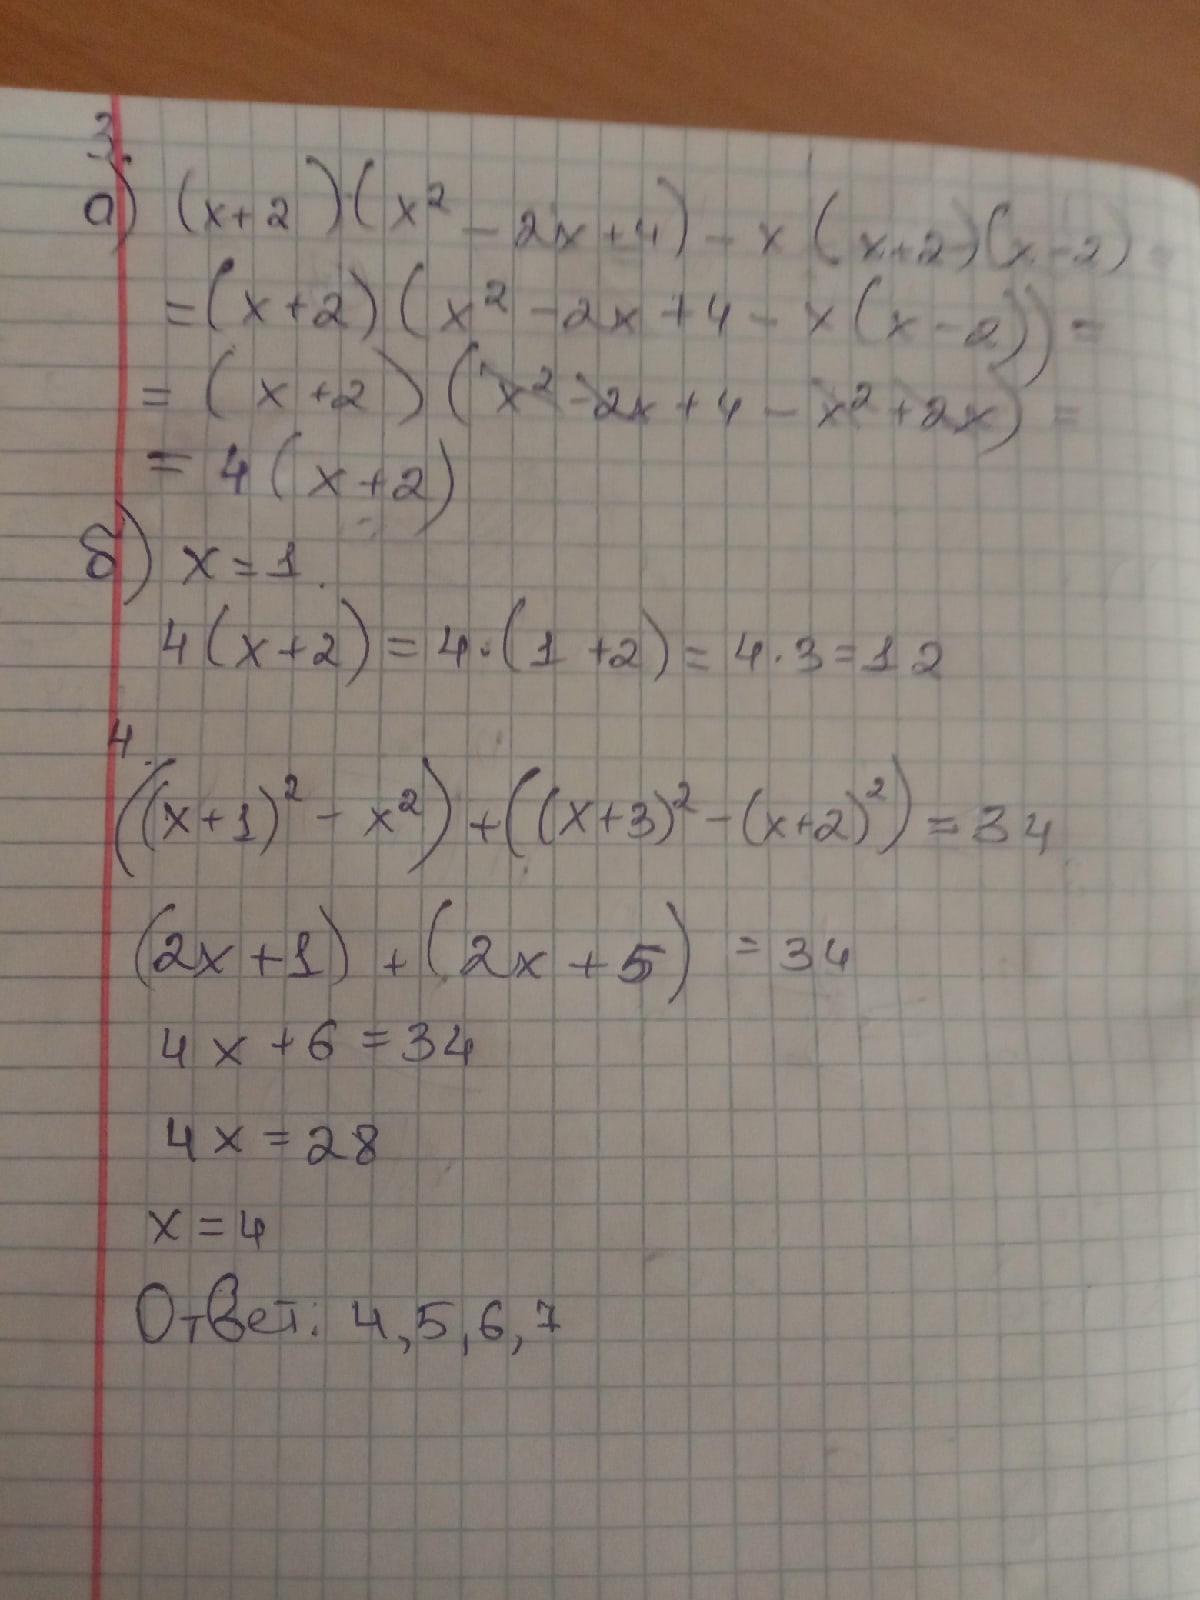 3.
а) (x+2)·(x² - 2x+4) - x (x+2)(x-2) =
= (x+2) (x² - 2x + 4 - x (x - 2)) =
= (x+2) (x² - 2x + 4 - x² + 2x) =
= 4 (x+2)
б) x = 1.
4(x+2) = 4·(1+2) = 4·3 = 12
4.
((x+1)² - x²) + ((x+3)² - (x+2)²) = 34
(2x+1) + (2x+5) = 34
4x + 6 = 34
4x = 28
x = 4
Ответ: 4, 5, 6, 7